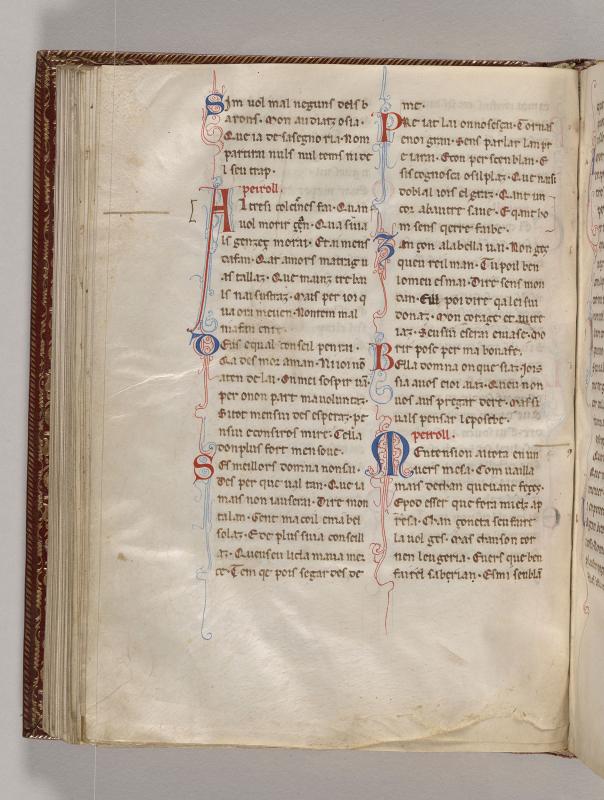 Sim uol mal neguns dels b
arons. Mon audiatz osia.
Que ia de sasegnoria. Nom
partira nuls nul tems ni de
l seu trap.
peiroll.
Altresi col cignes fai. Quan
uol morir chan. Qua siuia
ls genzet morai. Et ai mens
dafan. Qar amors matrag u
as tallaz. Que mainz treball
ls nai sustraz. Mais per ioi q
ua ori meuen. Nontem mal
Deus equal conseil penrai.
Qa des mor aman. Ni ioi no
aten de lai. On mei sospir uā.
per onon part ma uoluntaz.
Si tot mensui des esperaz. pe
nsiu econsiros mire. Cella
don plus fort mensoue.
Ses meillors domna nonsai.
Des per que ual tan. Que ia
mais non iauserai. Dire mon
talan. Gent macoil ema bel
solaz. E de plus siua conseill
az. Queuseu licla maua mer
ce. Tem qe pois segardes de
me.
Pretat lai onnosescai. Tornas
enoi gran. Sens parlar lan pr
e iaran. Eton per scenblan. E
sis cognosca osil plaz. Que nasi
doblal iois el graz. Qant un
cor abautre saue. E qant ho
m sens qerre fai be.
Zanzon alabella uai. Non ges
quen reilman. Tu poil ben
lomeu esmai. Dire sens mon
dan. Eill poi dire qa lei sui
donaz. Mon corage et autre
iaz. Seu sui eserai en iase. Mo
rir pose per ma bonafe.
Bella domna on que siaz. Iois
sia auos eioi aiaz. Queu non
uos aus pregar de re. Mas si
uals pensar leposc be.
peiroll.
Mentension ai tota en un
uers mesa. Com uailla
mais dechan queuanc feges.
Epod esser que fora mielz ap
resa. Chan çoneta seu faire
la uol ges. Qras chanson tor
nen leugeria. Euers que ben
faire i saberian. Esmi senblā